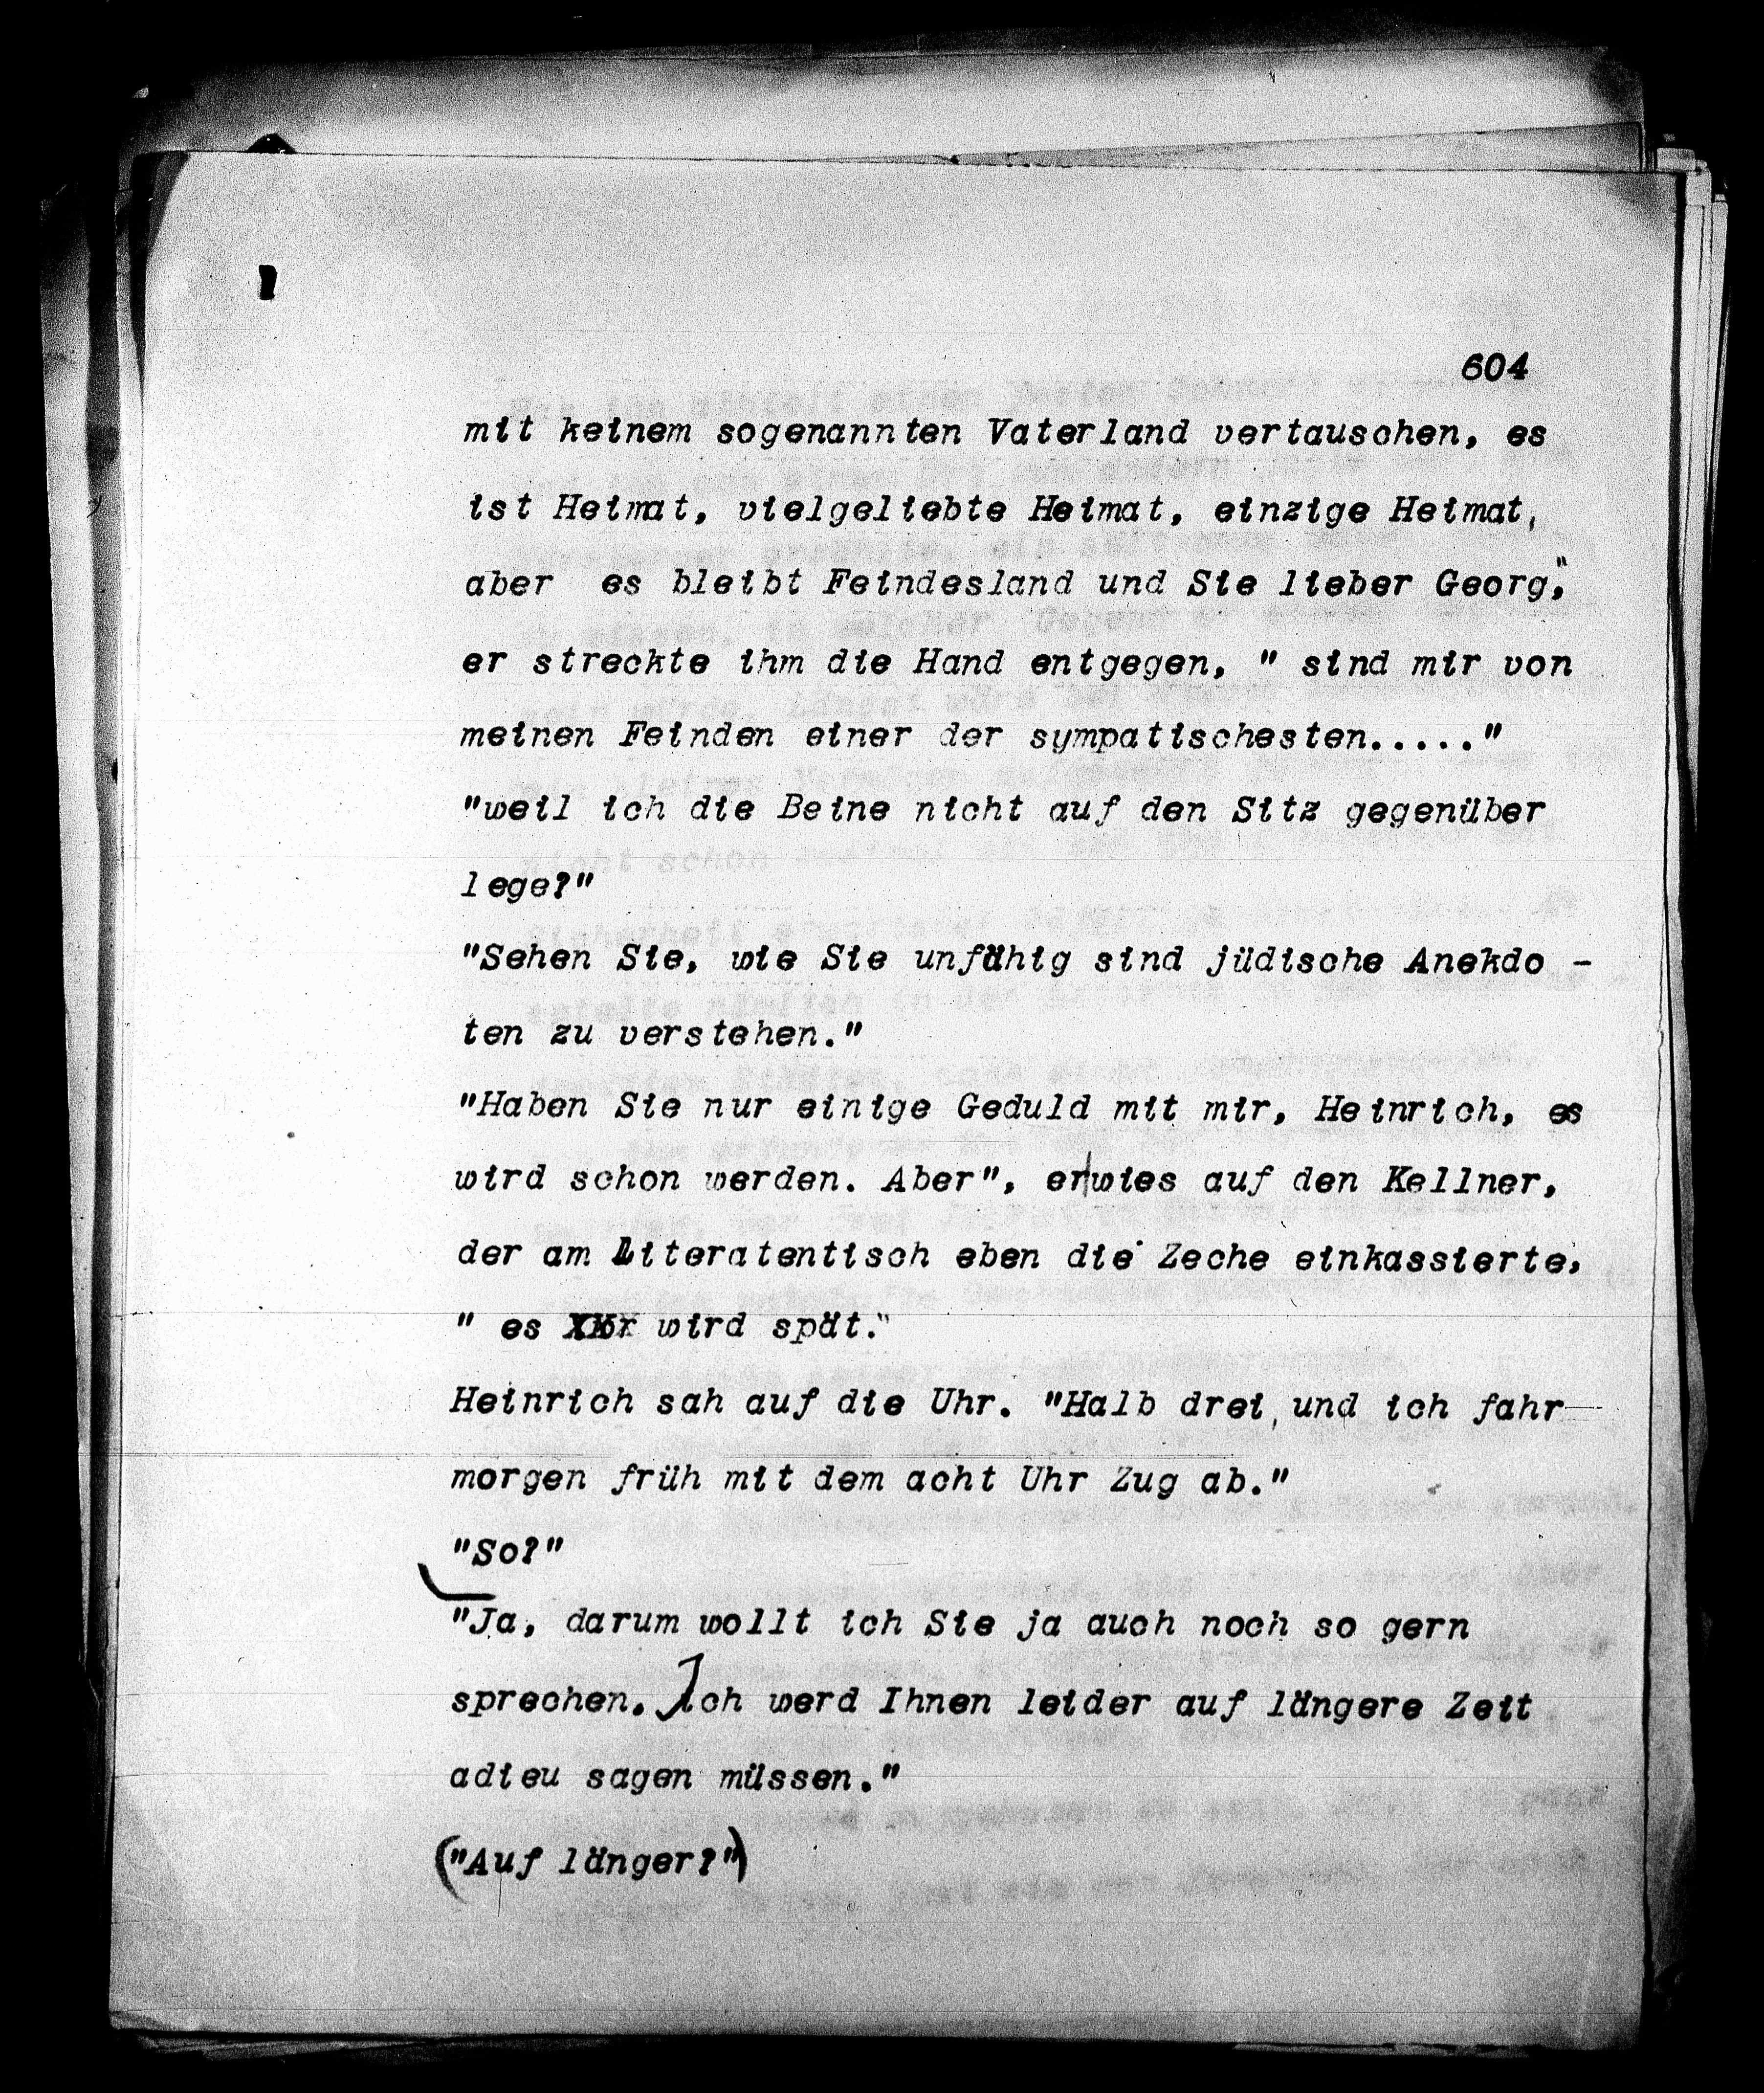 604
mit keinem sogenannten Vaterland vertauschen, es
ist Heimat, vielgeliebte Heimat, einzige Heimat,
aber es bleibt Feindesland und Sie lieber Georg,"
er streckte ihm die Hand entgegen, " sind mir von
meinen Feinden einer der sympatischesten....."
"weil ich die Beine nicht auf den Sitz gegenüber
lege?"
"Sehen Sie, wie Sie unfähig sind jüdische Anekdo -
ten zu verstehen."
"Haben Sie nur einige Geduld mit mir, Heinrich, es
wird schon werden. Aber", er|wies auf den Kellner,
der am Literatentisch eben die Zeche einkassierte,
" es wird spät."
Heinrich sah auf die Uhr. "Halb drei, und ich fahr
morgen früh mit dem acht Uhr Zug ab."
"So?"
"Ja, darum wollt ich Sie ja auch noch so gern
sprechen. Ich werd Ihnen leider auf längere Zeit
adieu sagen müssen."
("Auf länger?")